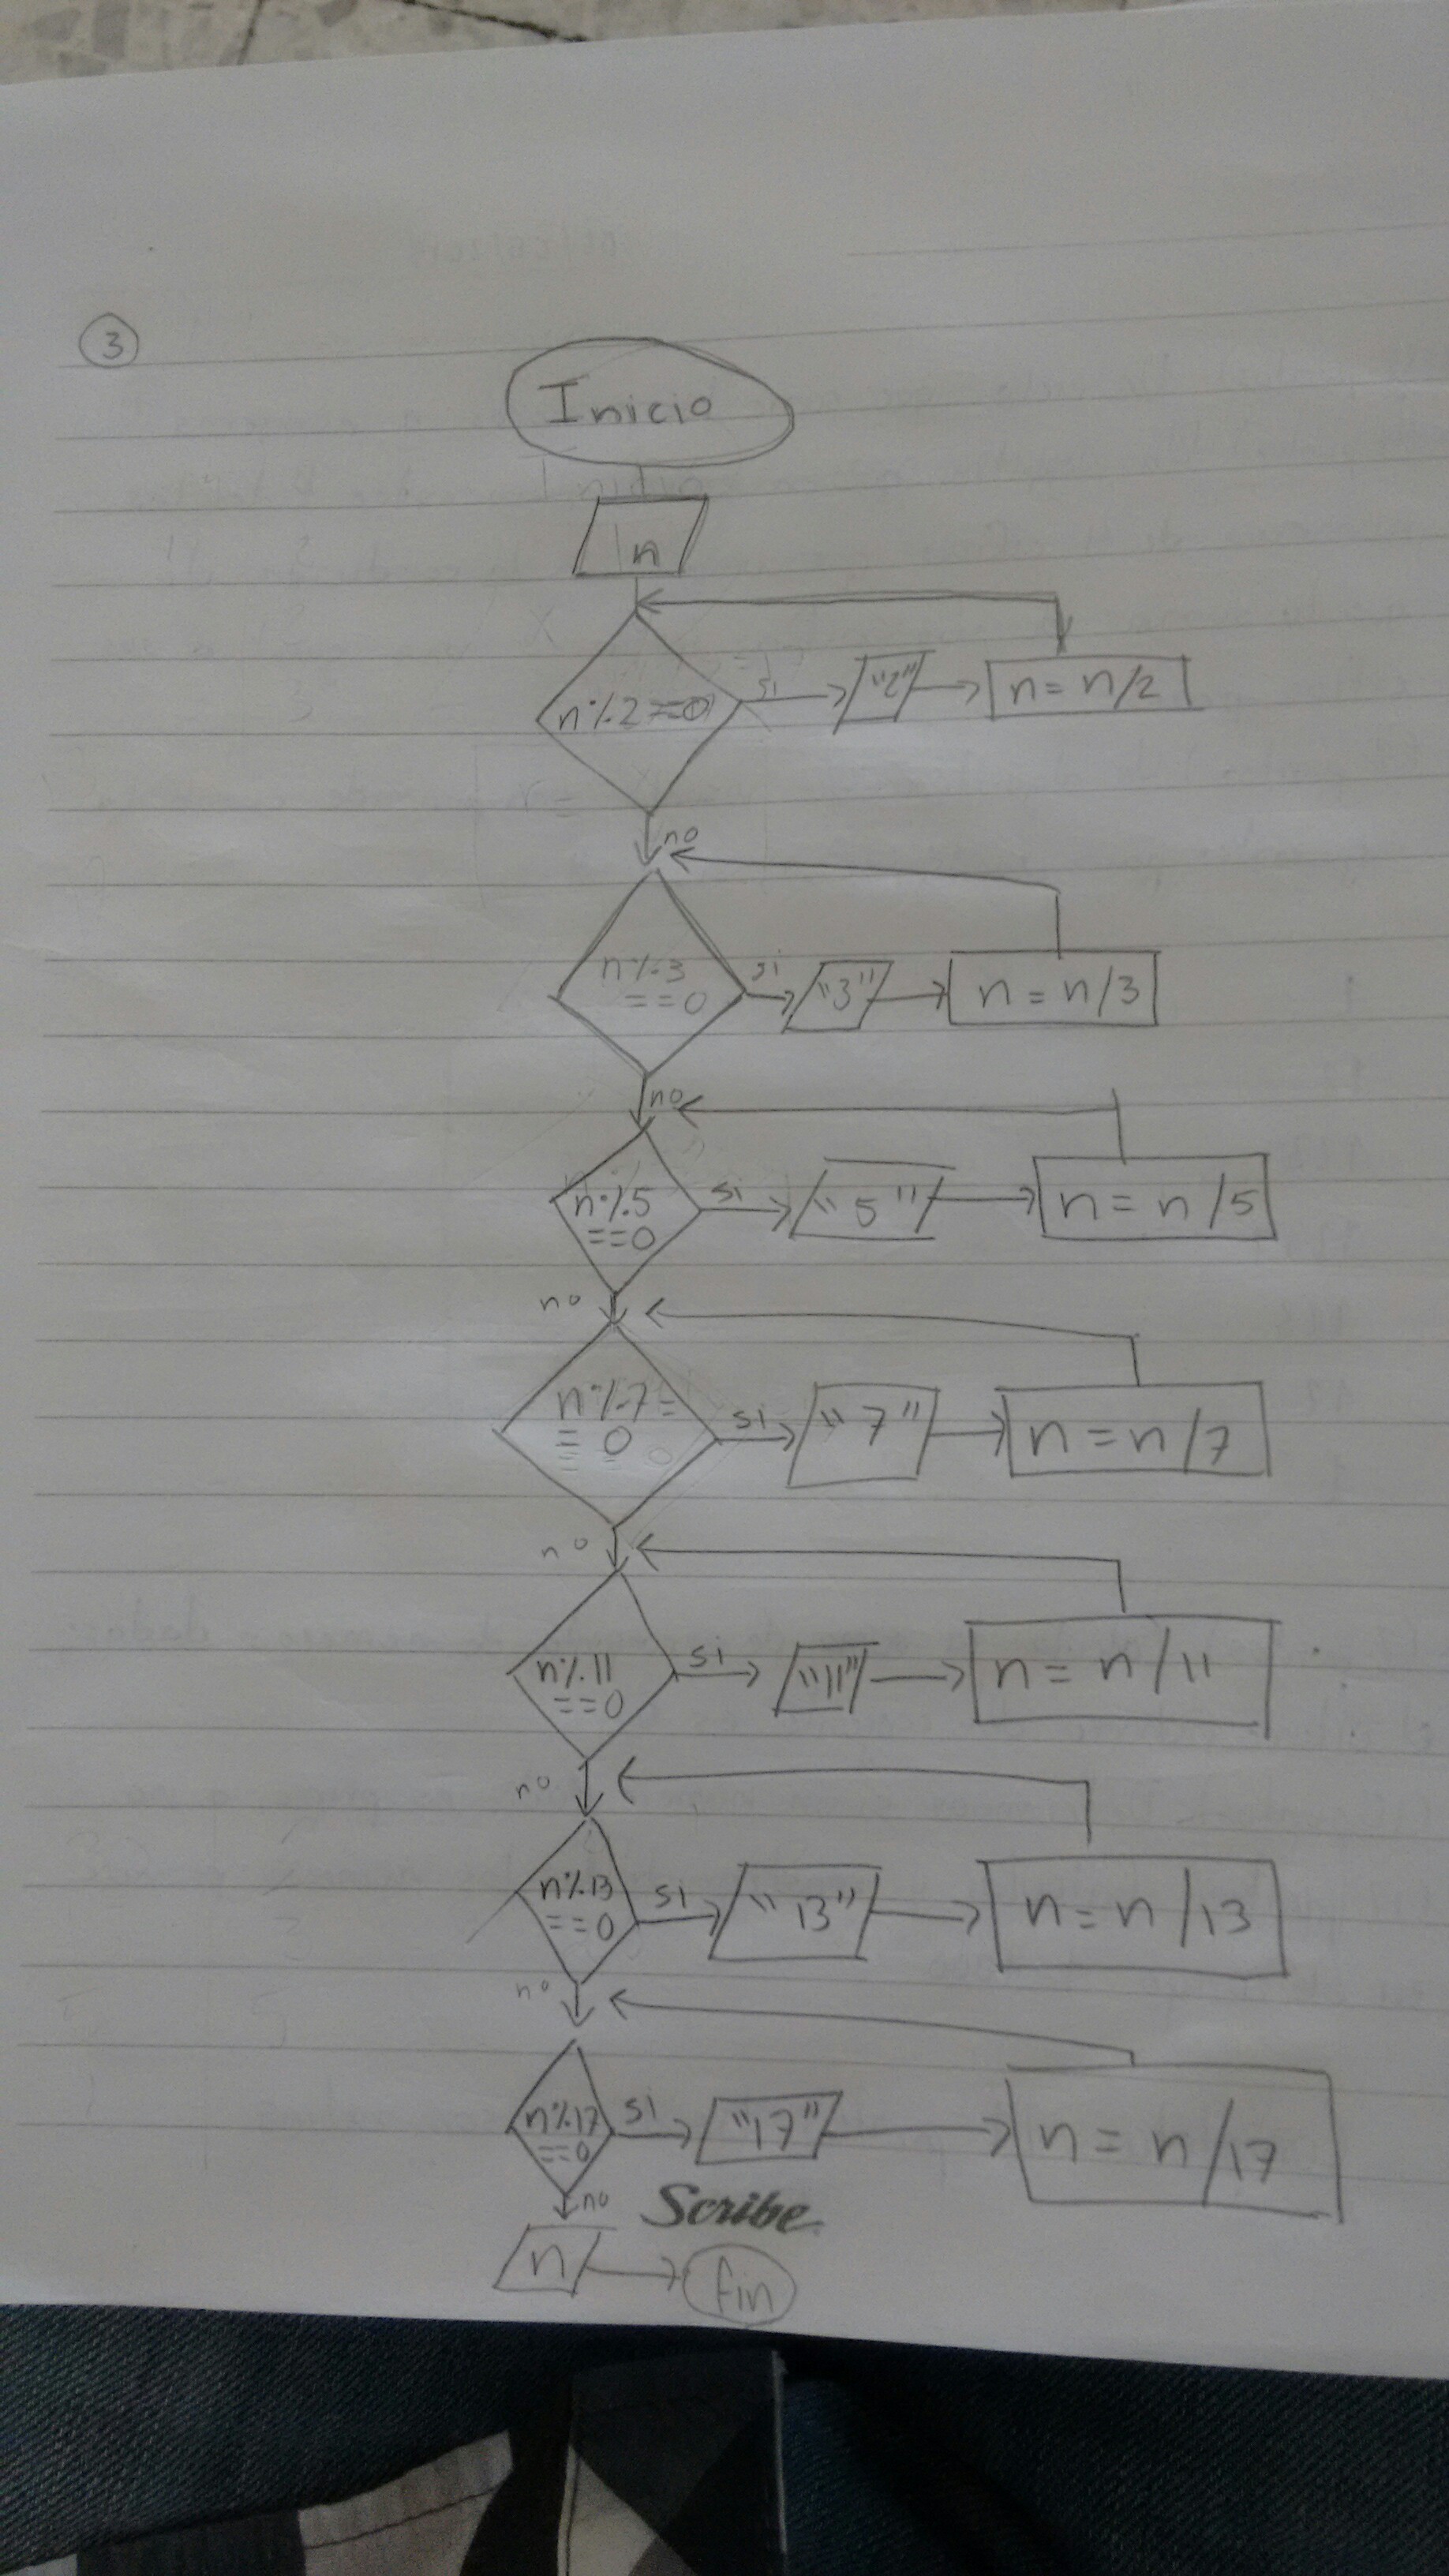 3
Inicio
n
n%2==0 si "2" n=n/2
no
n%3 si "3" n=n/3
==0
no
n%5 si "5" n=n/5
==0
no
n%7= si "7" n=n/7
=0
no
n%11 si "11" n=n/11
==0
no
n%13 si "13" n=n/13
==0
no
n%17 si "17" n=n/17
==0
no Scribe
n fin